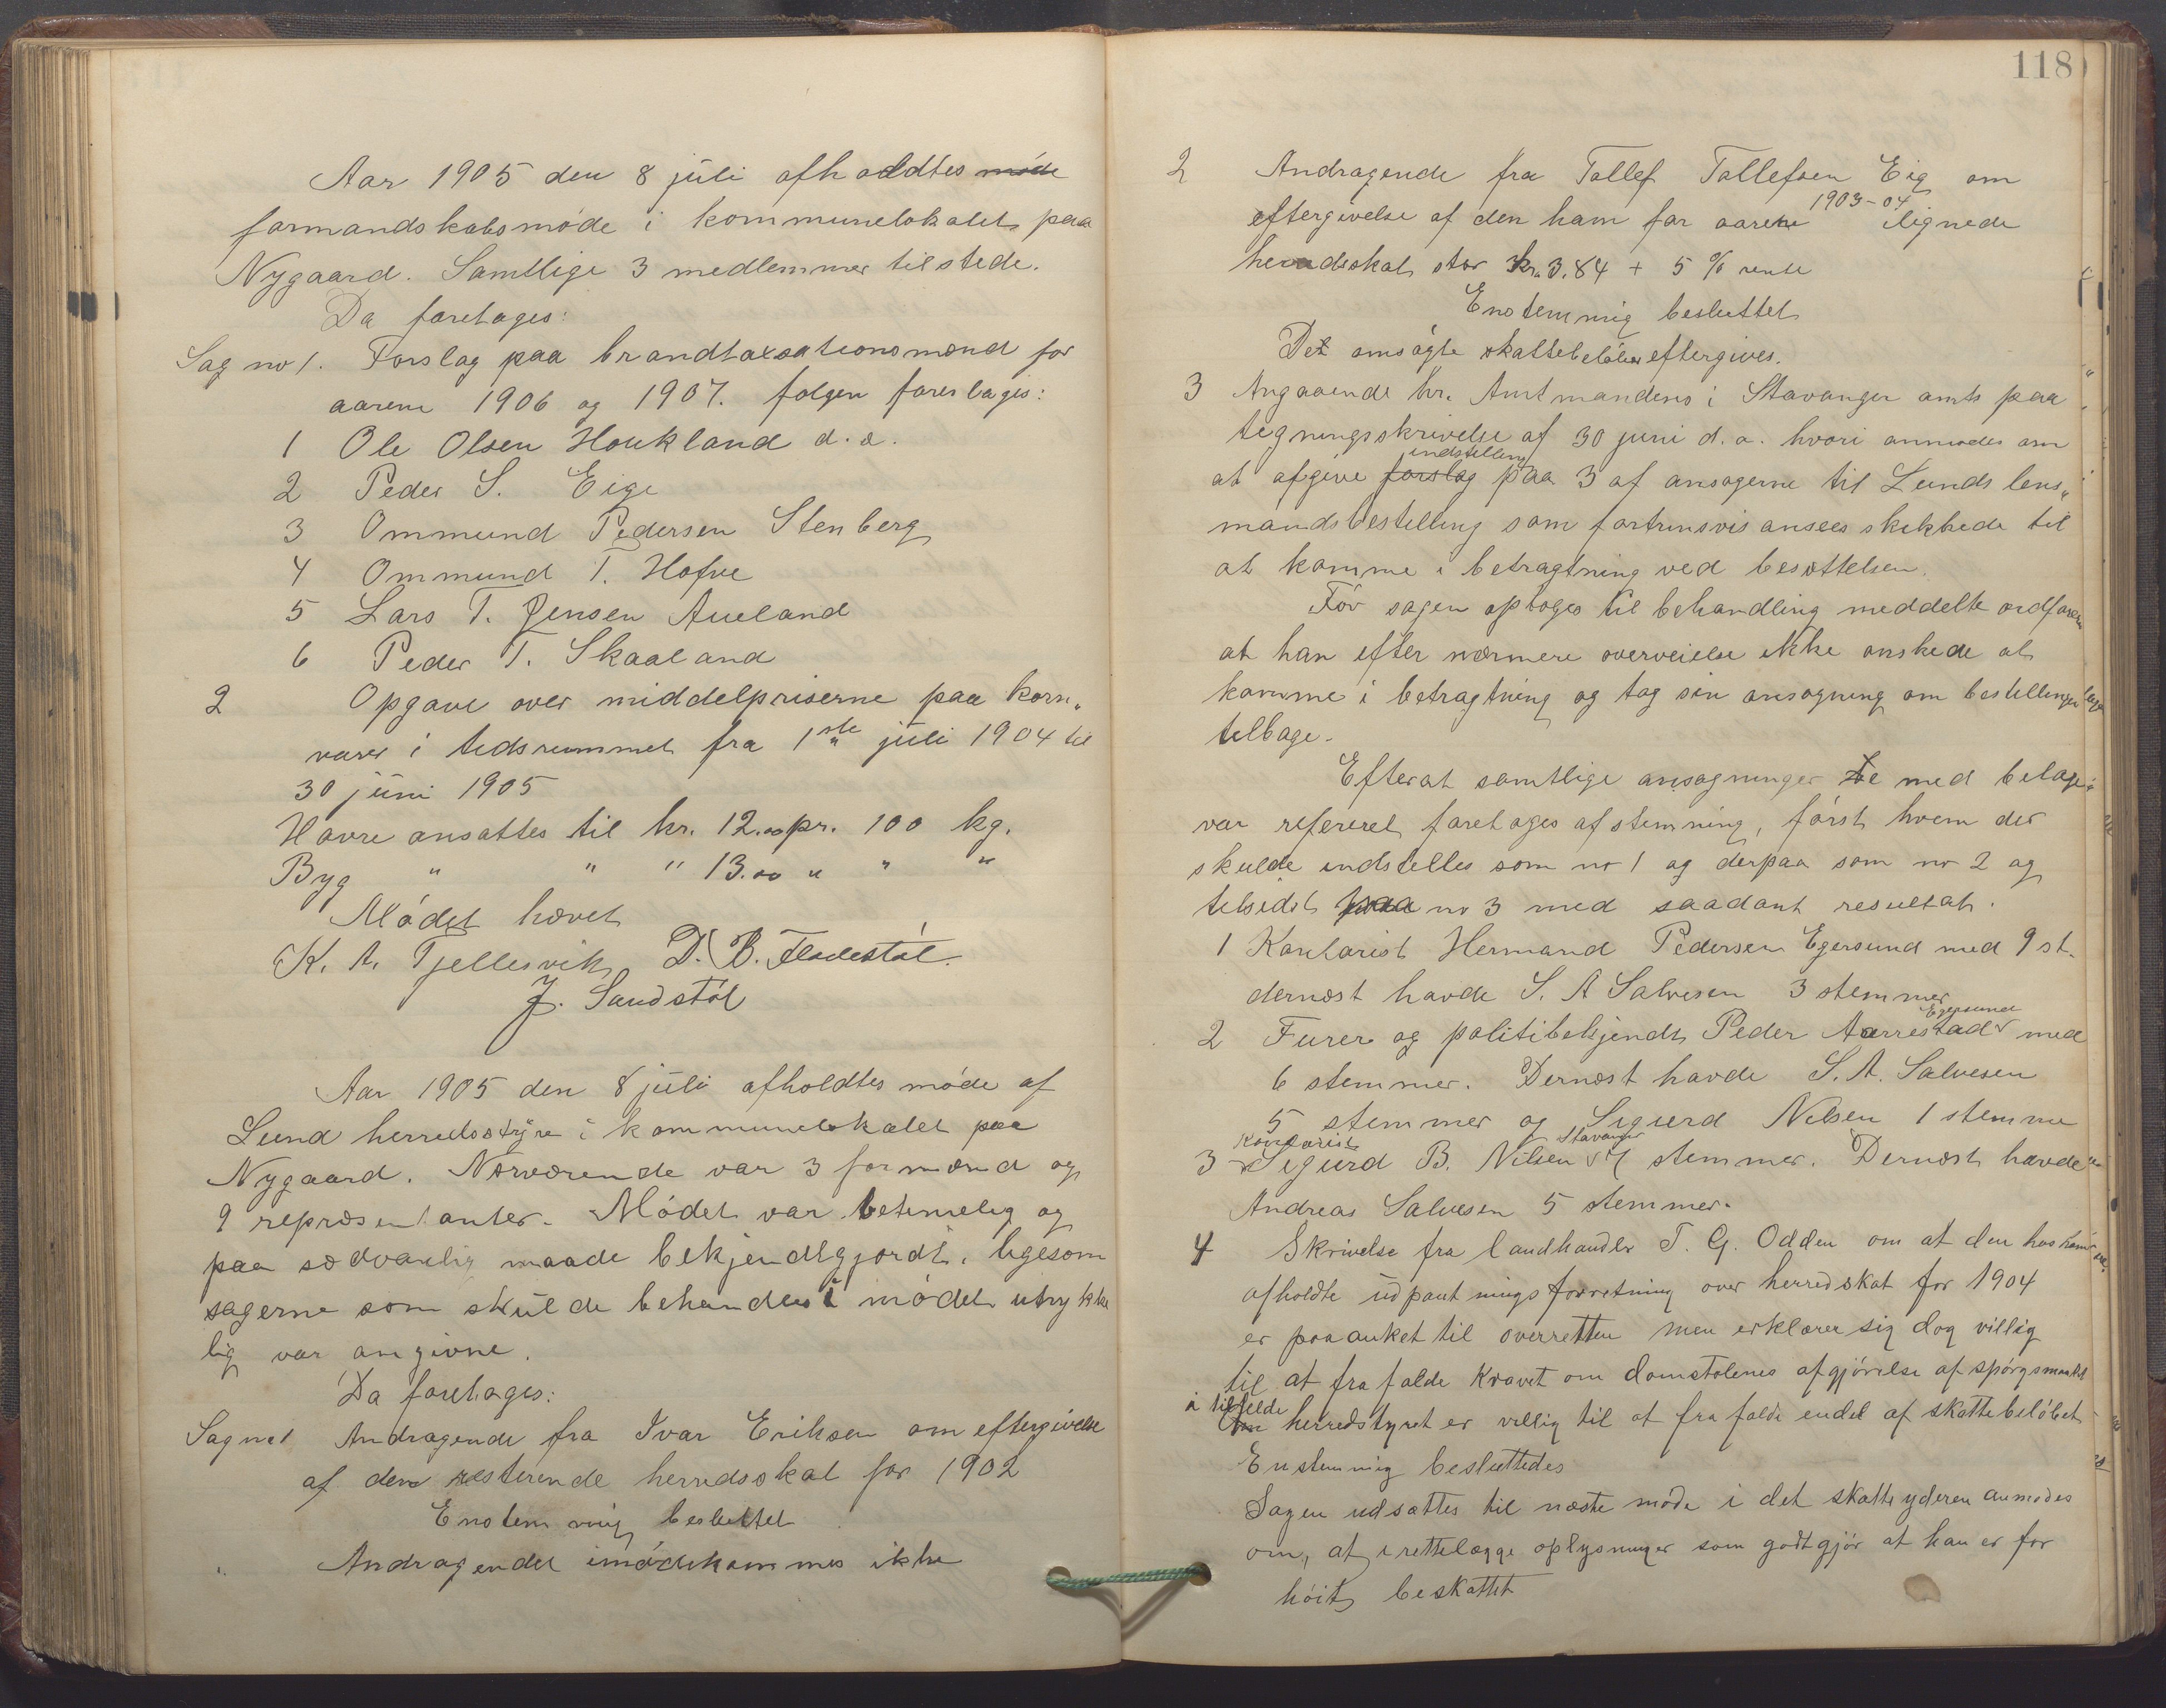 Aar 1905 den 8 juli afholdtes møde
formandskabsmøde i kommunelokalet paa
Nygaard. Samtlige 3 medlemmer tilstede.
Da foretoges:
Sag no 1. Forslag paa brandtaxsationsmænd for
aarene 1906 og 1907. følgen foreslages:
1 Ole Olsen Houkland d. æ.
2 Peder S. Eige
3 Ommund Pedersen Stenberg
4 Ommund T. Hofve
5 Lars T. Jensen Aueland
6 Peder T. Skaaland
2 Opgave over middelpriserne paa korn„
varer i tidsrummet fra 1ste juli 1904 til
30 juni 1905
Havre ansattes til kr. 12.00 pr. 100 kg.
Byg " " " 13.00 " " "
Mødet hævet
K. A. Tjellesvik D. B. Fladestøl
J. Sandstøl
Aar 1905 den 8 juli afholdtes møde af
Lund herredsstyre i kommunelokalet paa
Nygaard. Nærværende var 3 formænd og
9 repræsentanter. Mødet var betimelig og
paa sædvanlig maade bekjendtgjordt, ligesom
sagerne som skulde behandles i mødet utrykke
lig var angivne.
Da foretoges:
Sag no 1 Andragende fra Ivar Eriksen om eftergivelse
af den resterende herredsskat for 1902
Enstemmig besluttet
Andragendet imødekommes ikke
118
2 Andragende fra Tollef Tollefsen Eig om
1903-04
eftergivelse af den ham for aarene ilignede
herredsskat stor kr. 3.84 + 5 % rente
Enstemmig besluttet
Det omsøgte skattebeløb eftergives.
3 Angaaende hr. Amtmandens i Stavanger amts paa
tegningsskrivelse af 30 juni d. a. hvori anmodes om
indstilling
at afgive forslag paa 3 af ansøgerne til Lunds lens„
mandsbestilling som fortrinsvis ansees skikkede til
at komme i betragtning ved besættelsen.
Før sagen optoges til behandling meddelte ordføren
at han efter nærmere overveielse ikke ønskede at
komme i betragtning og tog sin ansøgning om bestillingen
tilbage.
Efterat samtlige ansøgninger med belage
var refereret foretoges afstemning, først hvem der
skulde indstilles som no 1 og derpaa som no 2 og
tilsidst no 3 med saadant resultat.
1 Kontorist Hermand Pedersen Egersund med 9 st.
dernæst havde S. A Salvesen 3 stemmer
Egersund
2 Furer og politibetjendt Peder Aarrestad med
6 stemmer. Dernæst havde S. A. Salvesen
5 stemmer og Sigurd Nilsen 1 stemme
Kontorist Stavanger
3 Sigurd B. Nilsen 7 stemmer. Dernæst havde
Andreas Salvesen 5 stemmer.
4 Skrivelse fra landhandler T. G. Odden om at den hos ham
afholdte udpantningsforretning over herredskat for 1904
er paaanket til overretten men erklærer sig dog villig
til at frafalde kravet om domstolenes afgjørelse af spørgsmaalet
i tilfælde
om herredstyret er villig til at frafalde endel af skattebeløbet
Enstemmig besluttedes
Sagen udsættes til næste møde i det skatteyderen anmodes
om, at irettelægge oplysninger som godtgjør at han er for
høit beskattet